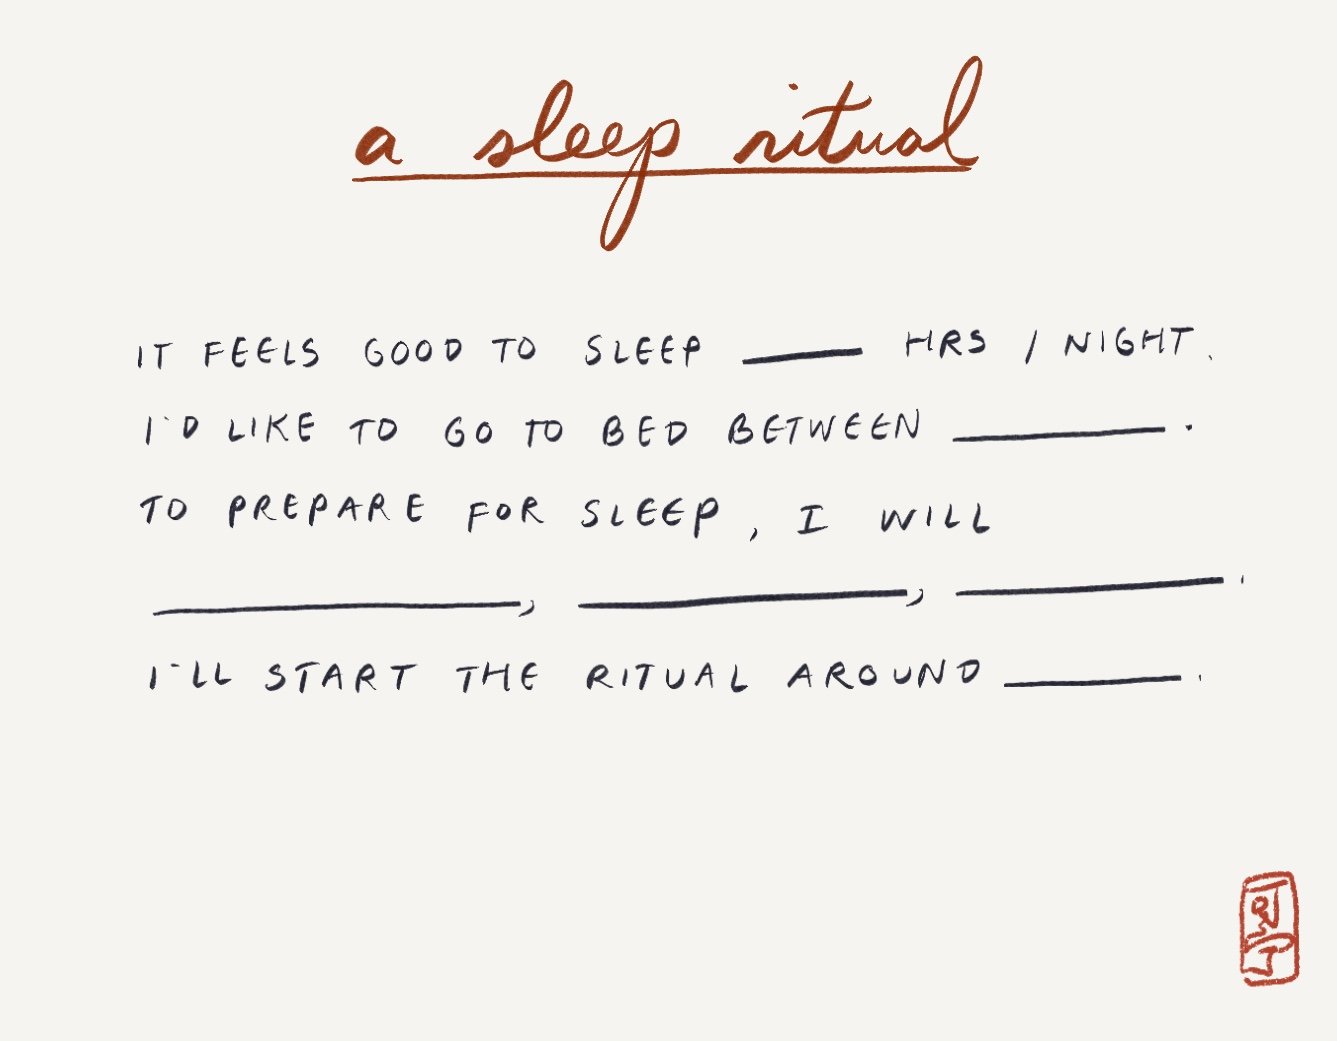 a sleep ritual
IT FEELS GOOD TO SLEEP ____ HRS / NIGHT.
I'D LIKE TO GO TO BED BETWEEN ____.
TO PREPARE FOR SLEEP, I WILL
____, ____, ____.
I'LL START THE RITUAL AROUND ____.